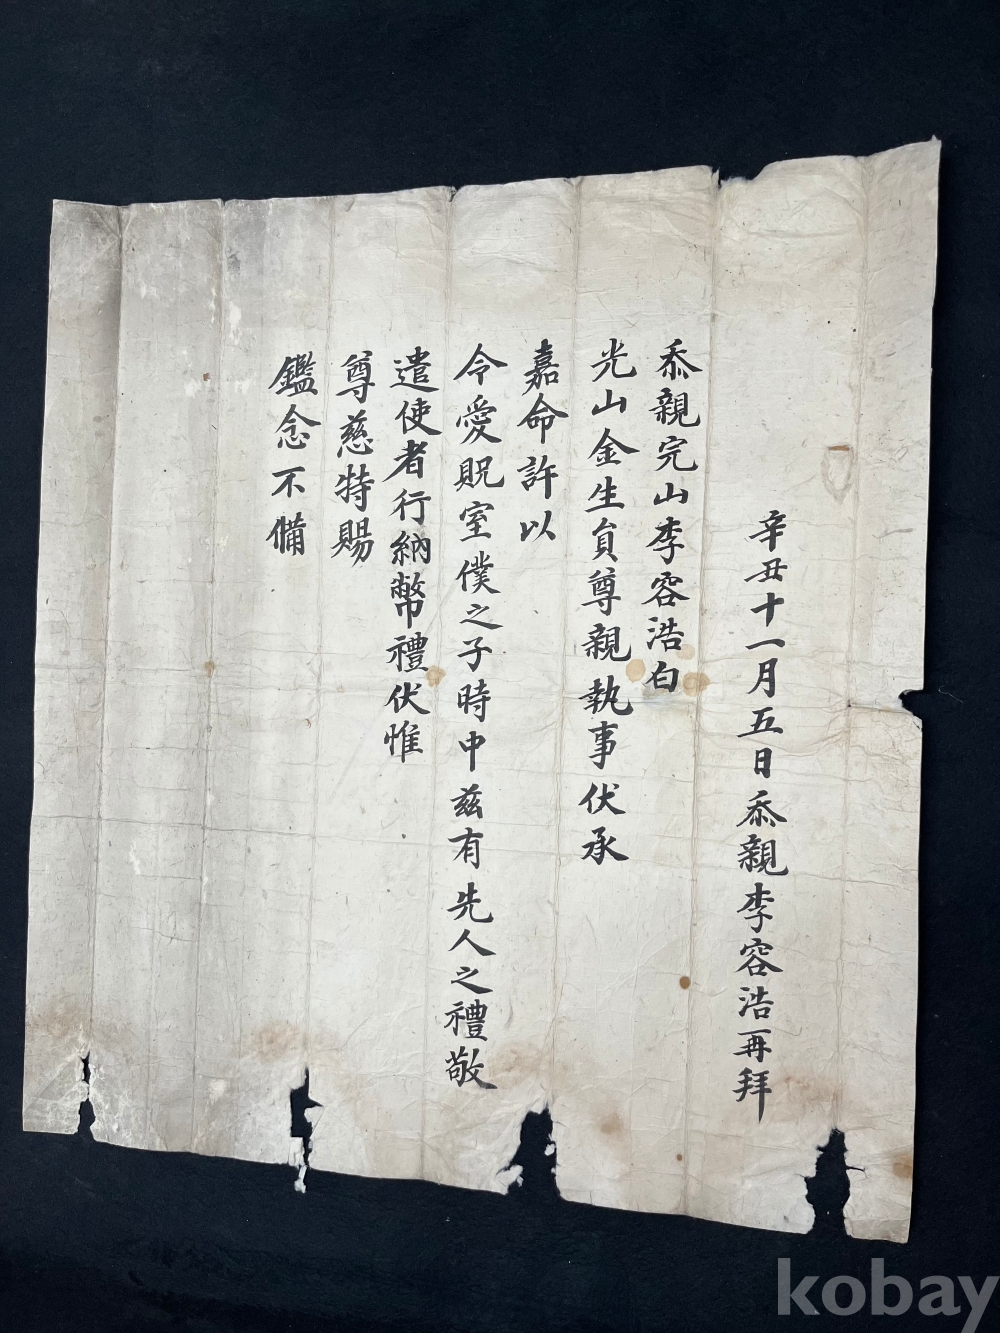 忝親完山李容浩白
光山金生員尊親執事伏承
嘉命許以
令愛貺室僕之子時中茲有先人之禮敬
遣使者行納幣禮伏惟
尊慈特賜
鑑念不備
辛丑十一月五日忝親李容浩再拜
kobay